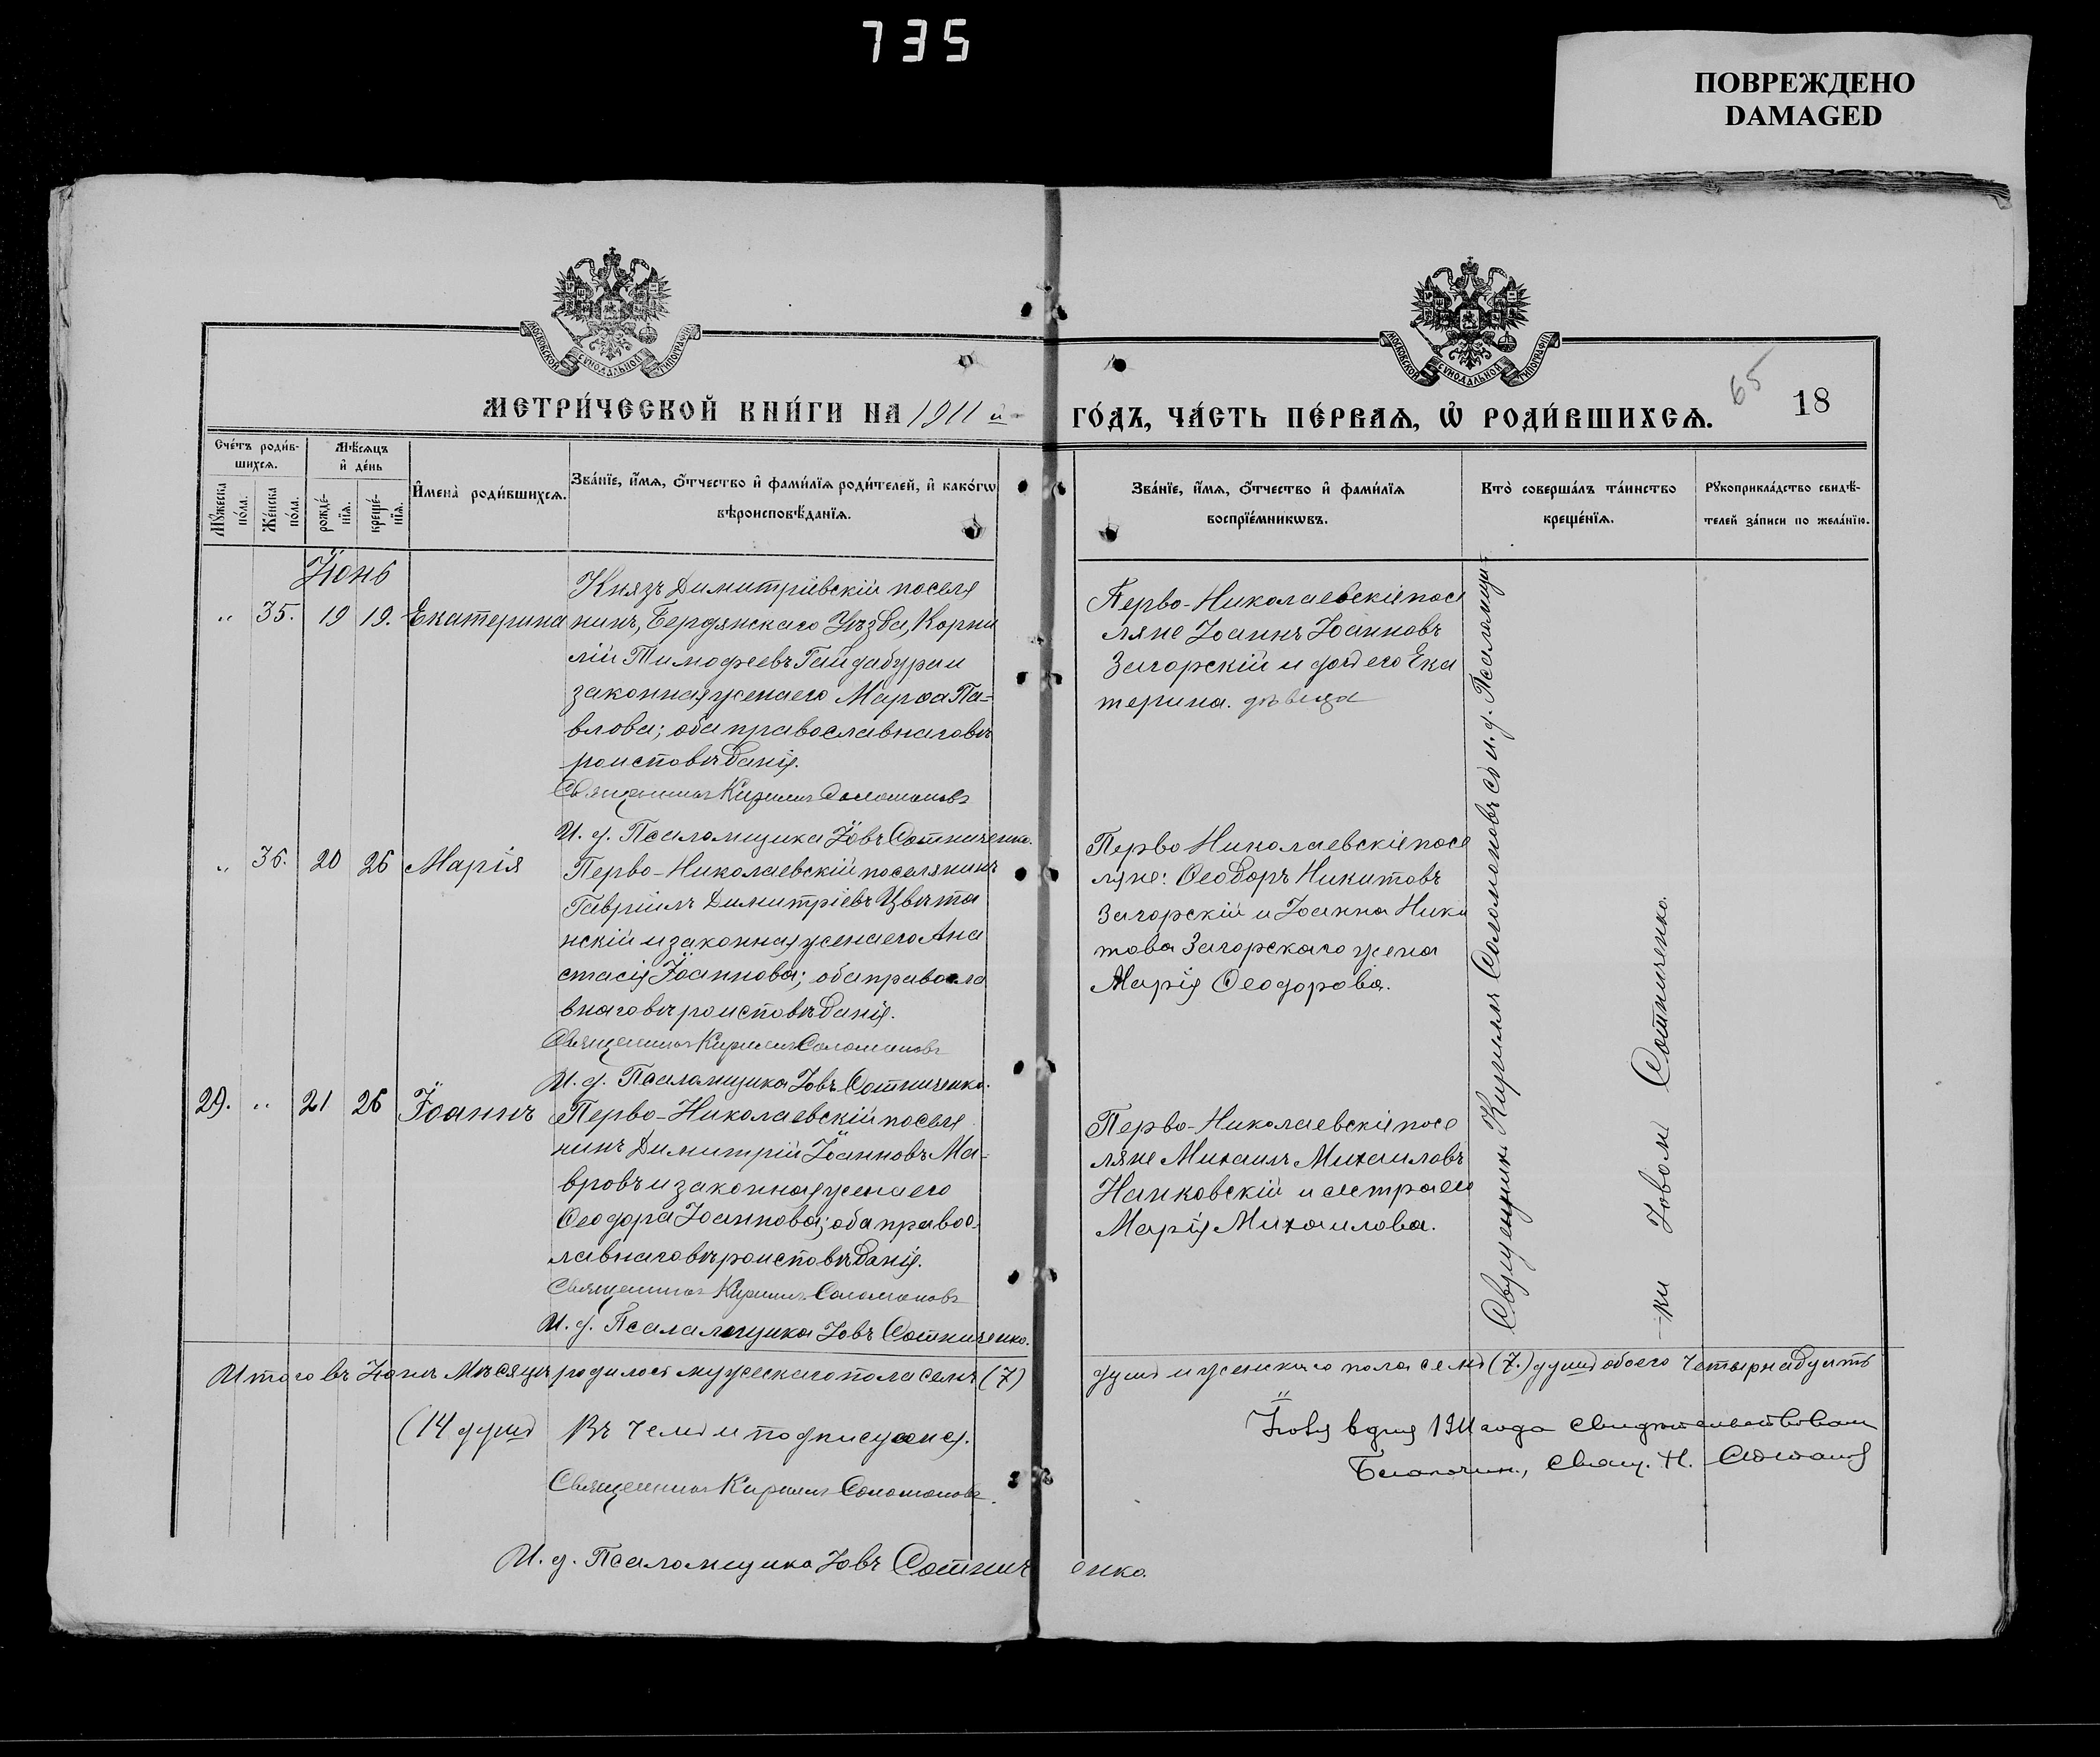 735
ПОВРЕЖДЕНО
DAMAGED
МОСКОВСКОЙ СѴНОДАЛЬНОЙ ТИПОГРАФІИ
МОСКОВСКОЙ СѴНОДАЛЬНОЙ ТИПОГРАФІИ
65
18
МЕТРИ́ЧЕСКОЙ КНИ́ГИ НА 1911 й
ГО́ДЪ, ЧА́СТЬ ПЕ́РВАѦ, Ѡ҆ РОДИ́ВШИХСѦ.
Сче́тъ роди́в-
шихсѧ.
Мѣ́сѧцъ
и҆ де́нь
Мꙋ́жеска
по́ла.
Же́нска
по́ла.
рожде́-
нїѧ.
креще́-
нїѧ.
И҆мена̀ роди́вшихсѧ.
Зва́нїе, и҆́мѧ, ѻ҆́тчество и҆ фами́лїѧ роди́телей, и҆ како́гѡ
вѣроисповѣ́данїѧ.
Зва́нїе, и҆́мѧ, ѻ҆́тчество и҆ фами́лїѧ
воспрїе́мникѡвъ.
Кто̀ соверша́лъ та́инство
креще́нїѧ.
Рꙋкоприкла́дство свидѣ́-
телей за́писи по жела́нїю.
Іюнь
„ 35. 19 19. Екатерина
Князь Димитріевскій поселя
нинъ, Бердянскаго Уѣзда, Корни
лій Тимофеевъ Гайдабура и
законная жена его Марѳа Па-
влова; оба православнаго вѣ
роисповѣданія.
Священникъ Кириллъ Соломоновъ
И. д. Псаломщика Іовъ Сотниченко.
Перво-Николаевскіе посе
ляне Іоаннъ Іоанновъ
Загорскій и дочь его Ека
терина. дѣвица
„ 36. 20 26 Марія
Перво-Николаевскій поселянинъ
Гавріилъ Димитріевъ Цвѣта
нскій и законная жена его Ана
стасія Іоаннова; оба правосла
внаго вѣроисповѣданія.
Священникъ Кириллъ Соломоновъ
И. д. Псаломщика Іовъ Сотниченко.
Перво Николаевскіе посе
ляне: Ѳеодоръ Никитовъ
Загорскій и Іоанна Ники
това Загорскаго жена
Марія Ѳеодорова.
29. „ 21 26 Іоаннъ
Перво-Николаевскій поселя
нинъ Димитрій Іоанновъ Ма-
вровъ и законная жена его
Ѳеодора Іоаннова; оба правос-
лавнаго вѣроисповѣданія.
Священникъ Кириллъ Соломоновъ
И. д. Псаламщика Іовъ Сотниченко.
Перво-Николаевскіе посе
ляне Михаилъ Михаиловъ
Нанковскій и сестра его
Марія Михаилова.
Священникъ Кириллъ Соломоновъ съ и. д. Псаломщи-
-ки Іовом Сотниченко.
Итого въ Іюнѣ Мѣсяцѣ родилось мужескаго пола семь (7)
душъ и женскаго пола семь (7.) душъ обоего четырнадцать
(14 душъ Въ чемъ и подписуемся.
Священникъ Кириллъ Соломоновъ.
И. д. Псаломщика Іовъ Сотниченко.
1911 года свидѣтельствовалъ
Благочин., Свящ. Н.